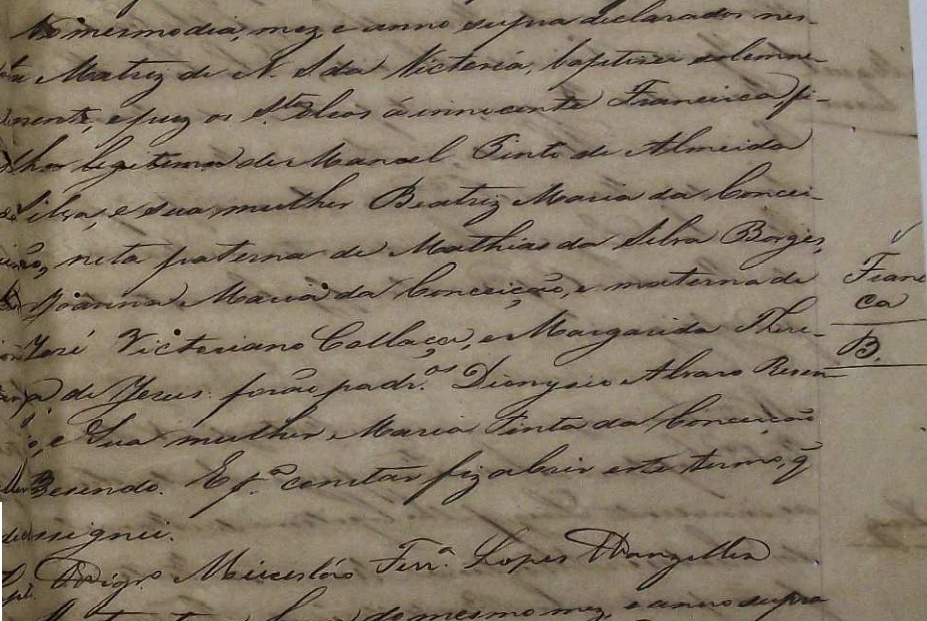 No mesmo dia, mez e anno supra declarados nes-
ta Matriz de N. S da Victoria, baptizei solemne-
mente, e puz os S.tos oleos á innocente Francisca, fi-
lha legitima de Manoel Pinto de Almeida
Silva, e sua mulher Beatriz Maria da Concei-
ção, neta paterna de Mathias da Silva Borges,
Joanna Maria da Conceição, e materna de
José Victoriano Collaço, e Margarida There-
de Jesus: forão padr.os Dionysio Alvaro Resen
e Sua mulher Maria Pinta da Conceição
Resendo. E p.a constar fiz abrir este termo, q̃
assignei.
Vigr.o Ferr.a Lopes Wanzeller
do mesmo mez, e anno supra
Franc
ca
B.